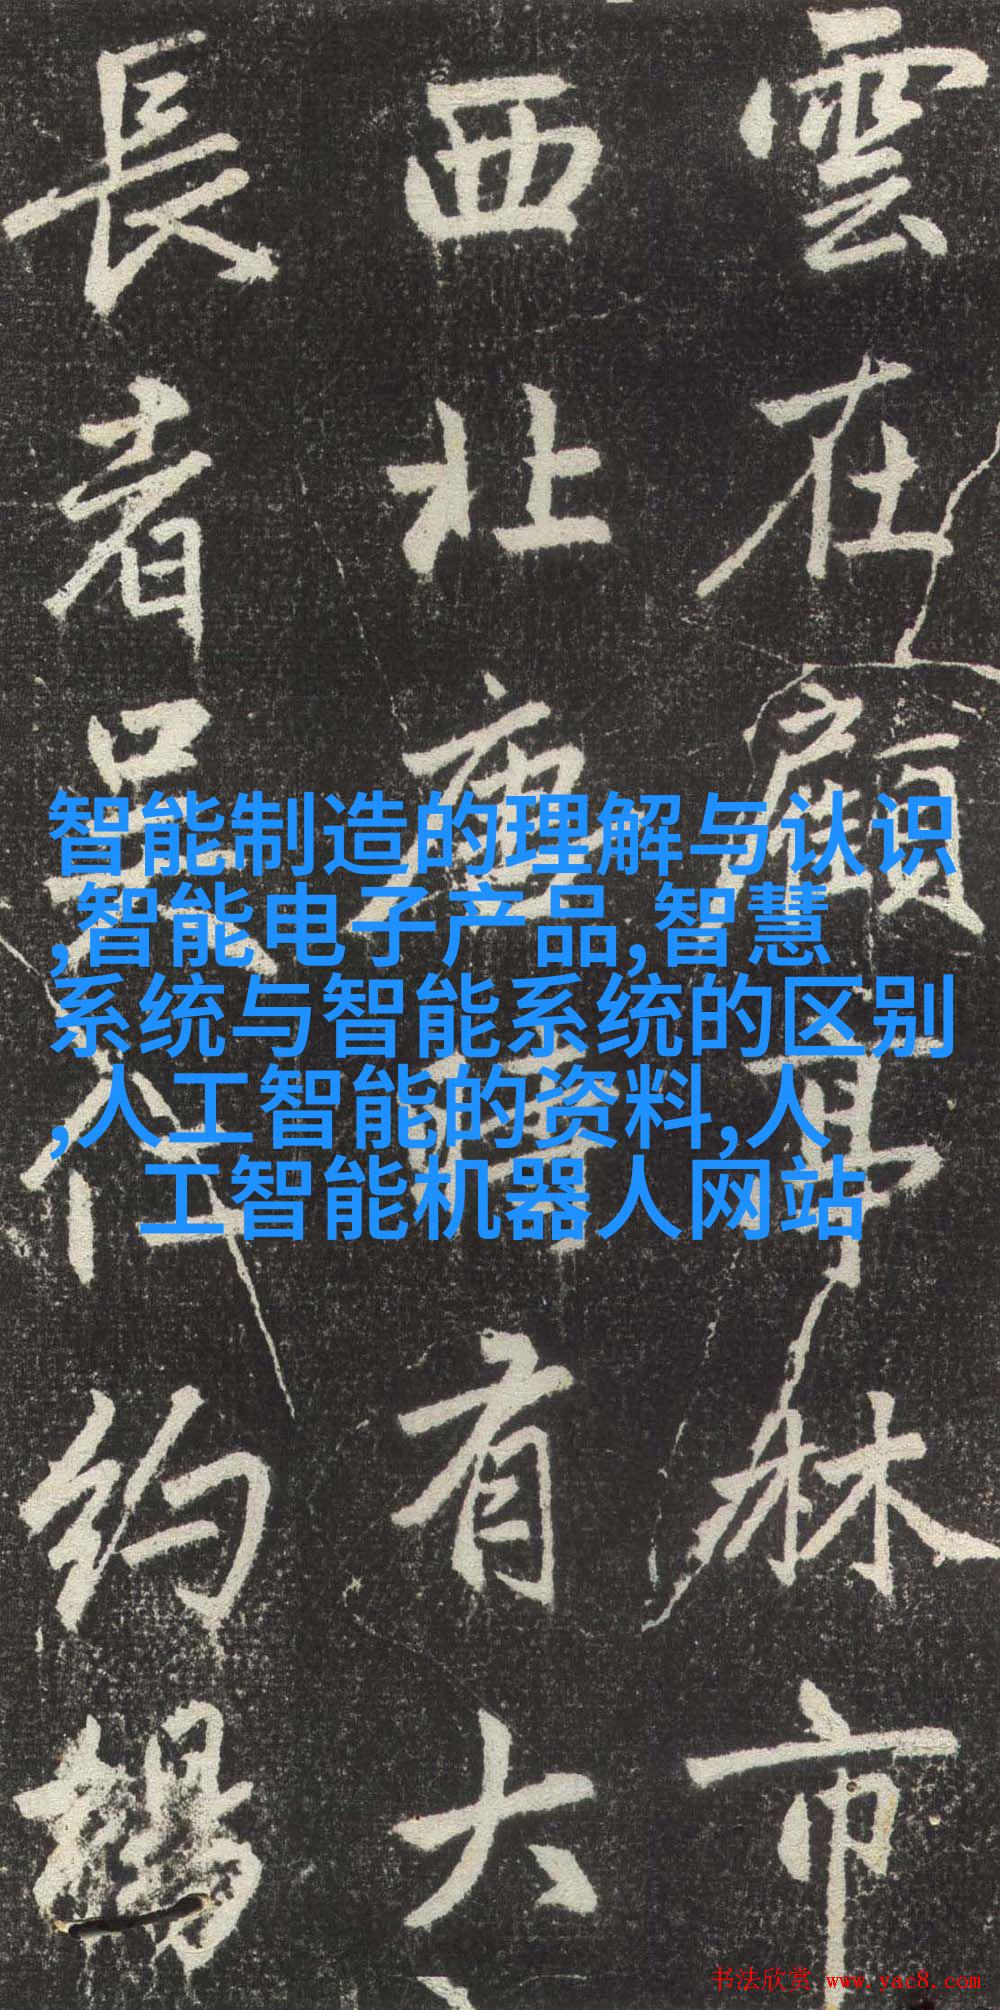 雲在顧亭林市
西北有大
長者吳約
智能制造的理解与认识
,智能电子产品,智慧
系统与智能系统的区别
,人工智能的资料,人
工智能机器人网站
书法欣赏 www.yac8.com